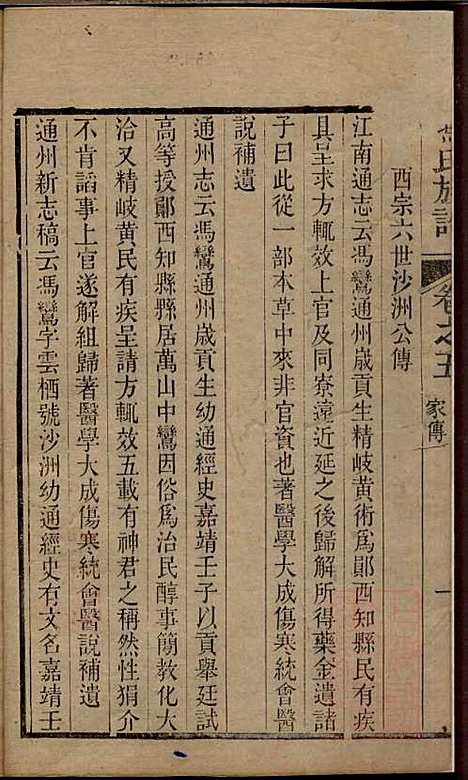 氏族譜
卷之五
家傳
一
西宗六世沙洲公傳
江南通志云馮鸞通州歲貢生精岐黃術爲鄖西知縣民有疾
具呈求方輒效上官及同寮遠近延之後歸解所得藥金遺諸
子曰此從一部本草中來非官資也著醫學大成傷寒統會醫
說補遺
通州志云馮鸞通州歲貢生幼通經史嘉靖壬子以貢舉廷試
高等授鄖西知縣縣居萬山中鸞因俗爲治民醇事簡教化大
洽又精岐黃民有疾呈請方輒效五載有神君之稱然性狷介
不肯謟事上官遂解組歸著醫學大成傷寒統會醫說補遺
通州新志稿云馮鸞字雲栖號沙洲幼通經史有文名嘉靖壬